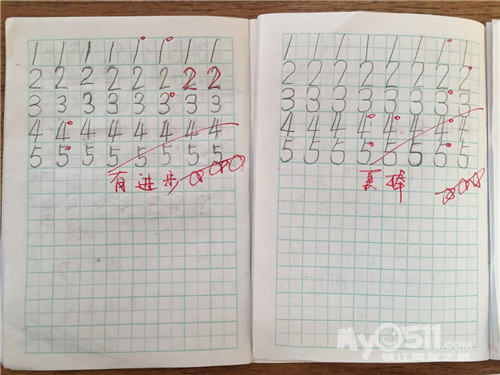 1 1 1 1 1 1 1 1
2 2 2 2 2 2 2 2
3 3 3 3 3 3 3 3
4 4 4 4 4 4 4 4
5 5 5 5 5 5 5 5
有进步
1 1 1 1 1 1 1 1
2 2 2 2 2 2 2 2
3 3 3 3 3 3 3 3
4 4 4 4 4 4 4 4
5 5 5 5 5 5 5 5
真棒
My0511.com